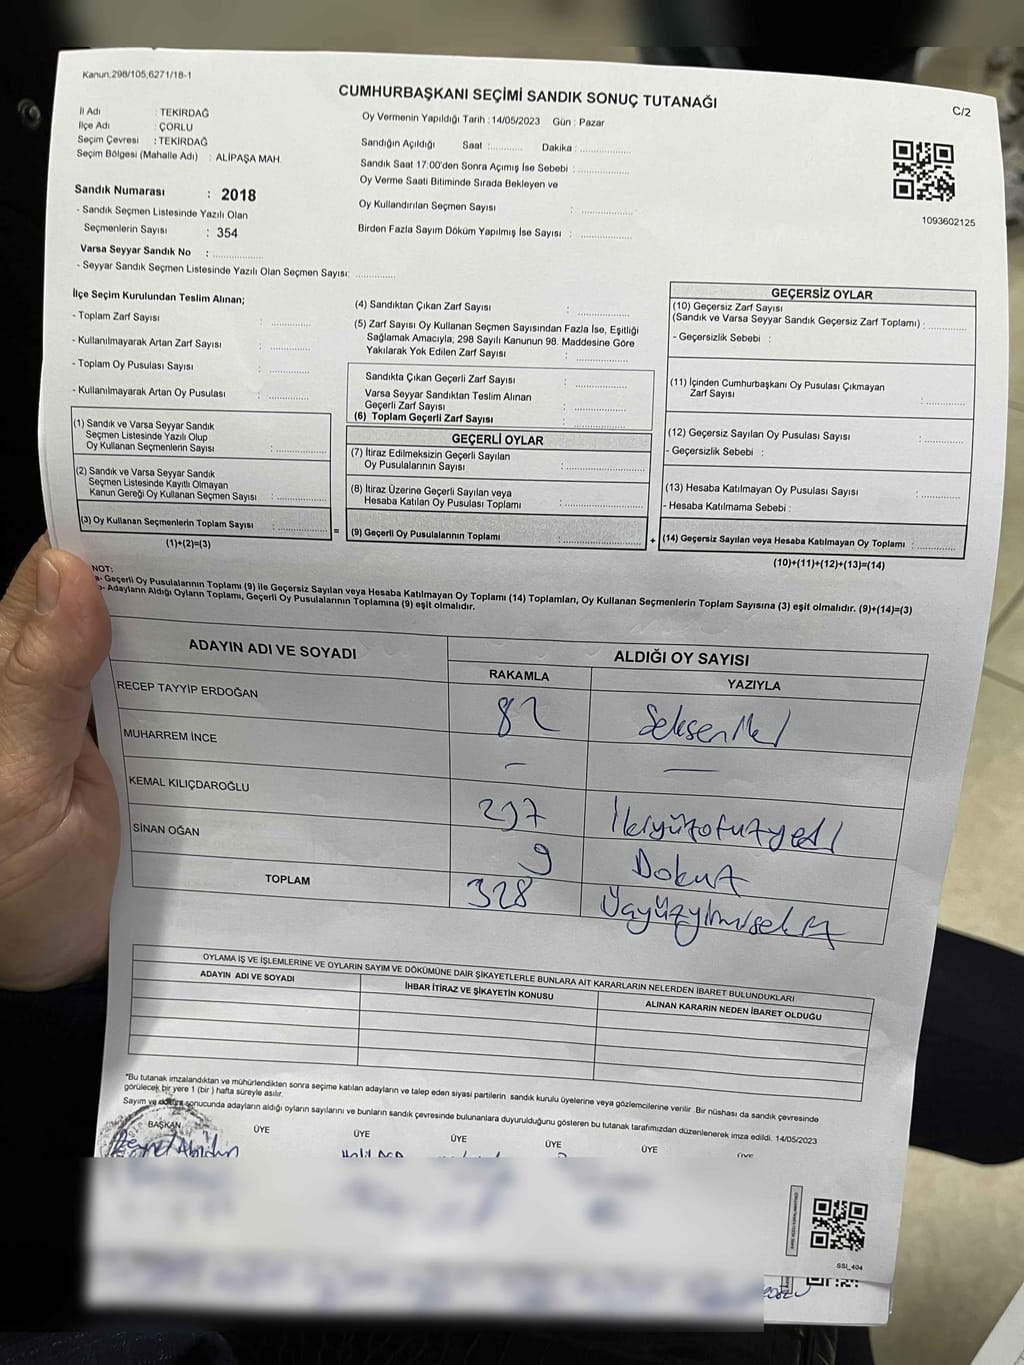 Kanun.298/105,6271/18-1
CUMHURBAŞKANI SEÇİMİ SANDIK SONUÇ TUTANAĞI
C/2
İl Adı : TEKİRDAĞ
İlçe Adı : ÇORLU
Seçim Çevresi : TEKİRDAĞ
Seçim Bölgesi (Mahalle Adı) : ALİPAŞA MAH.
Sandık Numarası : 2018
- Sandık Seçmen Listesinde Yazılı Olan
Seçmenlerin Sayısı : 354
Varsa Seyyar Sandık No : ................
- Seyyar Sandık Seçmen Listesinde Yazılı Olan Seçmen Sayısı: ............
Oy Vermenin Yapıldığı Tarih : 14/05/2023 Gün : Pazar
Sandığın Açıldığı Saat :........... Dakika : ................
Sandık Saat 17:00'den Sonra Açımış İse Sebebi : ................
Oy Verme Saati Bitiminde Sırada Bekleyen ve
Oy Kullandırılan Seçmen Sayısı : ................
Birden Fazla Sayım Döküm Yapılmış İse Sayısı : ................
1093602125
İlçe Seçim Kurulundan Teslim Alınan;
- Toplam Zarf Sayısı : ............
- Kullanılmayarak Artan Zarf Sayısı : ............
- Toplam Oy Pusulası Sayısı : ............
- Kullanılmayarak Artan Oy Pusulası : ............
(1) Sandık ve Varsa Seyyar Sandık
Seçmen Listesinde Yazılı Olup
Oy Kullanan Seçmenlerin Sayısı : ................
(2) Sandık ve Varsa Seyyar Sandık
Seçmen Listesinde Kayıtlı Olmayan
Kanun Gereği Oy Kullanan Seçmen Sayısı : ................
(3) Oy Kullanan Seçmenlerin Toplam Sayısı : ................
(1)+(2)=(3)
=
(4) Sandıktan Çıkan Zarf Sayısı : ................
(5) Zarf Sayısı Oy Kullanan Seçmen Sayısından Fazla İse, Eşitliği
Sağlamak Amacıyla; 298 Sayılı Kanunun 98. Maddesine Göre
Yakılarak Yok Edilen Zarf Sayısı : ................
Sandıkta Çıkan Geçerli Zarf Sayısı : ................
Varsa Seyyar Sandıktan Teslim Alınan
Geçerli Zarf Sayısı : ................
(6) Toplam Geçerli Zarf Sayısı : ................
GEÇERLİ OYLAR
(7) İtiraz Edilmeksizin Geçerli Sayılan
Oy Pusulalarının Sayısı : ................
(8) İtiraz Üzerine Geçerli Sayılan veya
Hesaba Katılan Oy Pusulası Toplamı : ................
(9) Geçerli Oy Pusulalarının Toplamı : ................
+
GEÇERSİZ OYLAR
(10) Geçersiz Zarf Sayısı
(Sandık ve Varsa Seyyar Sandık Geçersiz Zarf Toplamı) : ............
- Geçersizlik Sebebi :
(11) İçinden Cumhurbaşkanı Oy Pusulası Çıkmayan
Zarf Sayısı : ............
(12) Geçersiz Sayılan Oy Pusulası Sayısı : ............
- Geçersizlik Sebebi :
(13) Hesaba Katılmayan Oy Pusulası Sayısı : ............
- Hesaba Katılmama Sebebi :
(14) Geçersiz Sayılan veya Hesaba Katılmayan Oy Toplamı : ............
(10)+(11)+(12)+(13)=(14)
NOT:
a- Geçerli Oy Pusulalarının Toplamı (9) ile Geçersiz Sayılan veya Hesaba Katılmayan Oy Toplamı (14) Toplamları, Oy Kullanan Seçmenlerin Toplam Sayısına (3) eşit olmalıdır. (9)+(14)=(3)
b- Adayların Aldığı Oyların Toplamı, Geçerli Oy Pusulalarının Toplamına (9) eşit olmalıdır.
ADAYIN ADI VE SOYADI
ALDIĞI OY SAYISI
RAKAMLA YAZIYLA
RECEP TAYYİP ERDOĞAN 82 Seksen iki
MUHARREM İNCE - —
KEMAL KILIÇDAROĞLU 237 İkiyüzotuzyedi
SİNAN OĞAN 9 Dokuz
TOPLAM 328 Üçyüzyirmisekiz
OYLAMA İŞ VE İŞLEMLERİNE VE OYLARIN SAYIM VE DÖKÜMÜNE DAİR ŞİKAYETLERLE BUNLARA AİT KARARLARIN NELERDEN İBARET BULUNDUKLARI
ADAYIN ADI VE SOYADI İHBAR İTİRAZ VE ŞİKAYETİN KONUSU ALINAN KARARIN NEDEN İBARET OLDUĞU
*Bu tutanak imzalandıktan ve mühürlendikten sonra seçime katılan adayların ve talep eden siyasi partilerin sandık kurulu üyelerine veya gözlemcilerine verilir. Bir nüshası da sandık çevresinde
görülecek bir yere 1 (bir) hafta süreyle asılır.
Sayım ve döküm sonucunda adayların aldığı oyların sayılarını ve bunların sandık çevresinde bulunanlara duyurulduğunu gösteren bu tutanak tarafımızdan düzenlenerek imza edildi. 14/05/2023
BAŞKAN ÜYE ÜYE ÜYE ÜYE ÜYE ÜYE
SSI_404